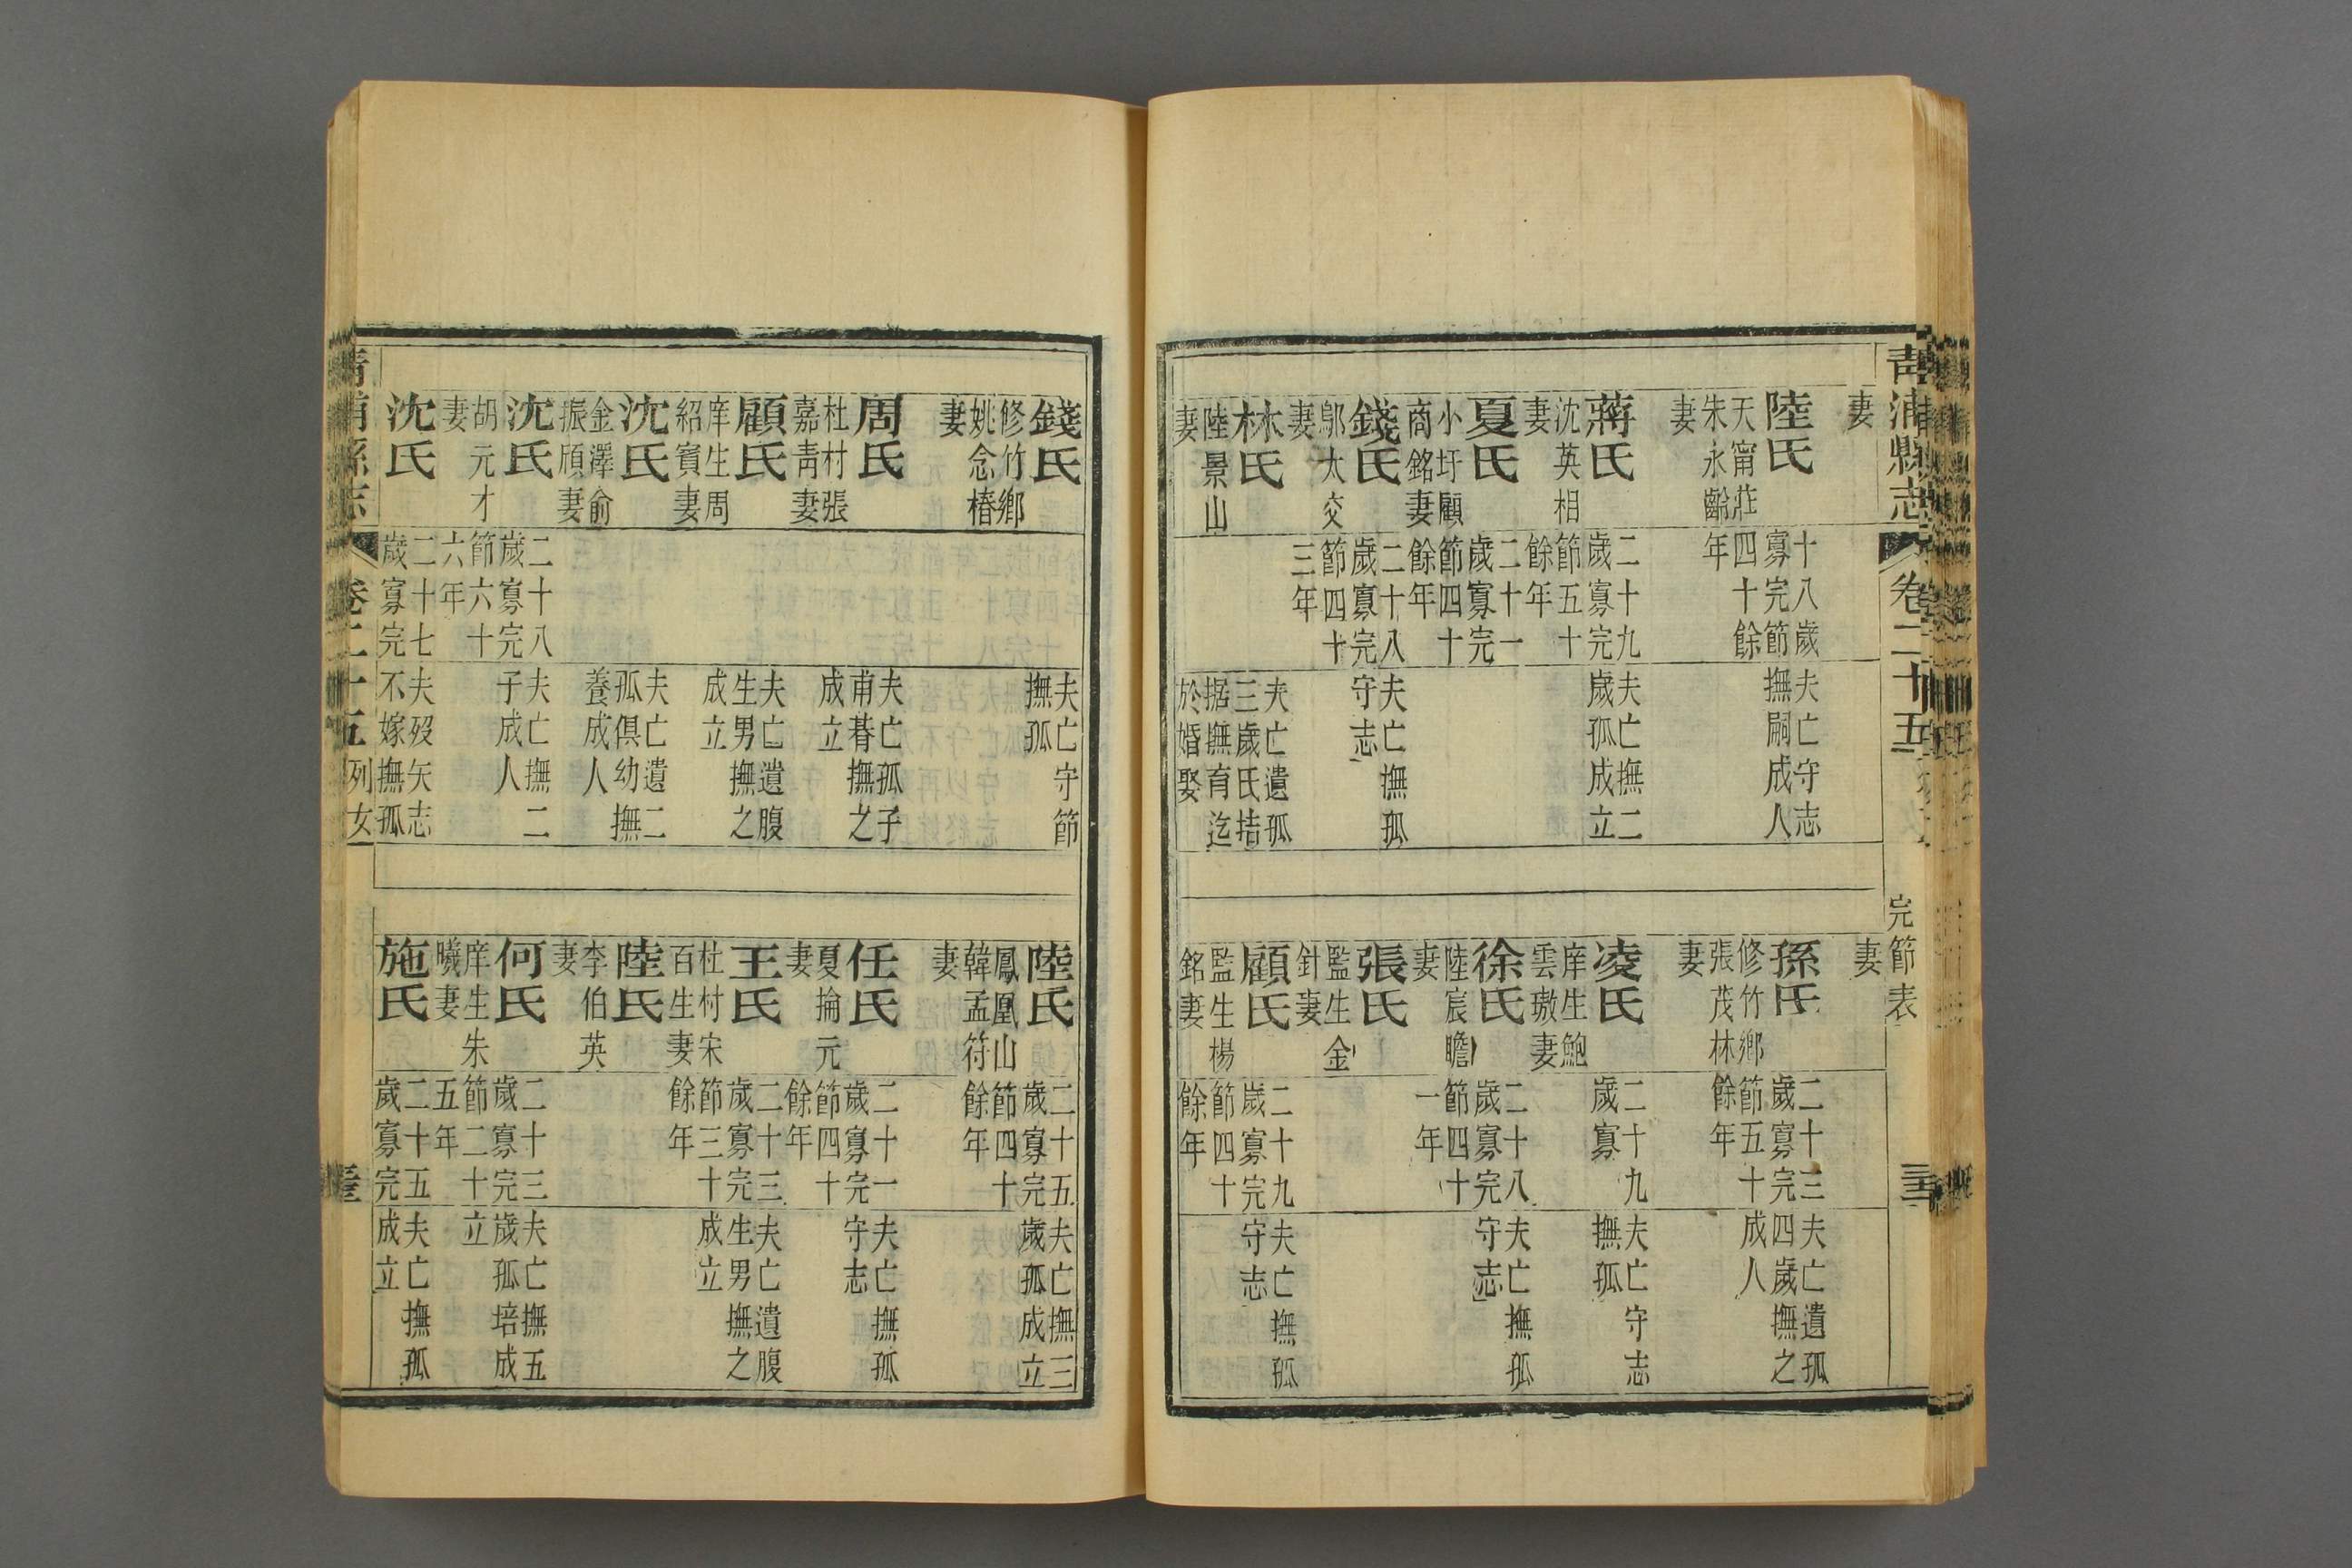 青浦縣志
卷二十五
完節表
妻
陸氏
天甯莊
朱永齡
妻
十八歲
寡完節
四十餘
年
夫亡守志
撫嗣成人
蔣氏
沈英相
妻
二十九
歲寡完
節五十
餘年
夫亡撫二
歲孤成立
夏氏
小圩顧
商銘妻
二十一
歲寡完
節四十
餘年
錢氏
鄔太交
妻
二十八
歲寡完
節四十
三年
夫亡撫孤
守志
林氏
陸景山
妻
夫亡遺孤
三歲氏拮
据撫育迄
於婚娶
妻
孫氏
修竹鄉
張茂林
妻
二十三
歲寡完
節五十
餘年
夫亡遺孤
四歲撫之
成人
凌氏
庠生鮑
雲璈妻
二十九
歲寡
夫亡守志
撫孤
徐氏
陸宸瞻
妻
二十八
歲寡完
節四十
一年
夫亡撫孤
守志
張氏
監生金
針妻
顧氏
監生楊
銘妻
二十九
歲寡完
節四十
餘年
夫亡撫孤
守志
錢氏
修竹鄉
姚念椿
妻
夫亡守節
撫孤
周氏
杜村張
嘉靑妻
夫亡孤子
甫朞撫之
成立
顧氏
庠生周
紹賓妻
夫亡遺腹
生男撫之
成立
沈氏
金澤俞
振頎妻
夫亡遺二
孤俱幼撫
養成人
沈氏
胡元才
妻
二十八
歲寡完
節六十
六年
夫亡撫二
子成人
沈氏
二十七
歲寡完
夫歿矢志
不嫁撫孤
陸氏
鳳凰山
韓孟符
妻
二十五
歲寡完
節四十
餘年
夫亡撫三
歲孤成立
任氏
夏掄元
妻
二十一
歲寡完
節四十
餘年
夫亡撫孤
守志
王氏
杜村宋
百生妻
二十三
歲寡完
節三十
餘年
夫亡遺腹
生男撫之
成立
陸氏
李伯英
妻
何氏
庠生朱
曦妻
二十三
歲寡完
節二十
五年
夫亡撫五
歲孤培成
立
施氏
二十五
歲寡完
夫亡撫孤
成立
卷二十五
列女